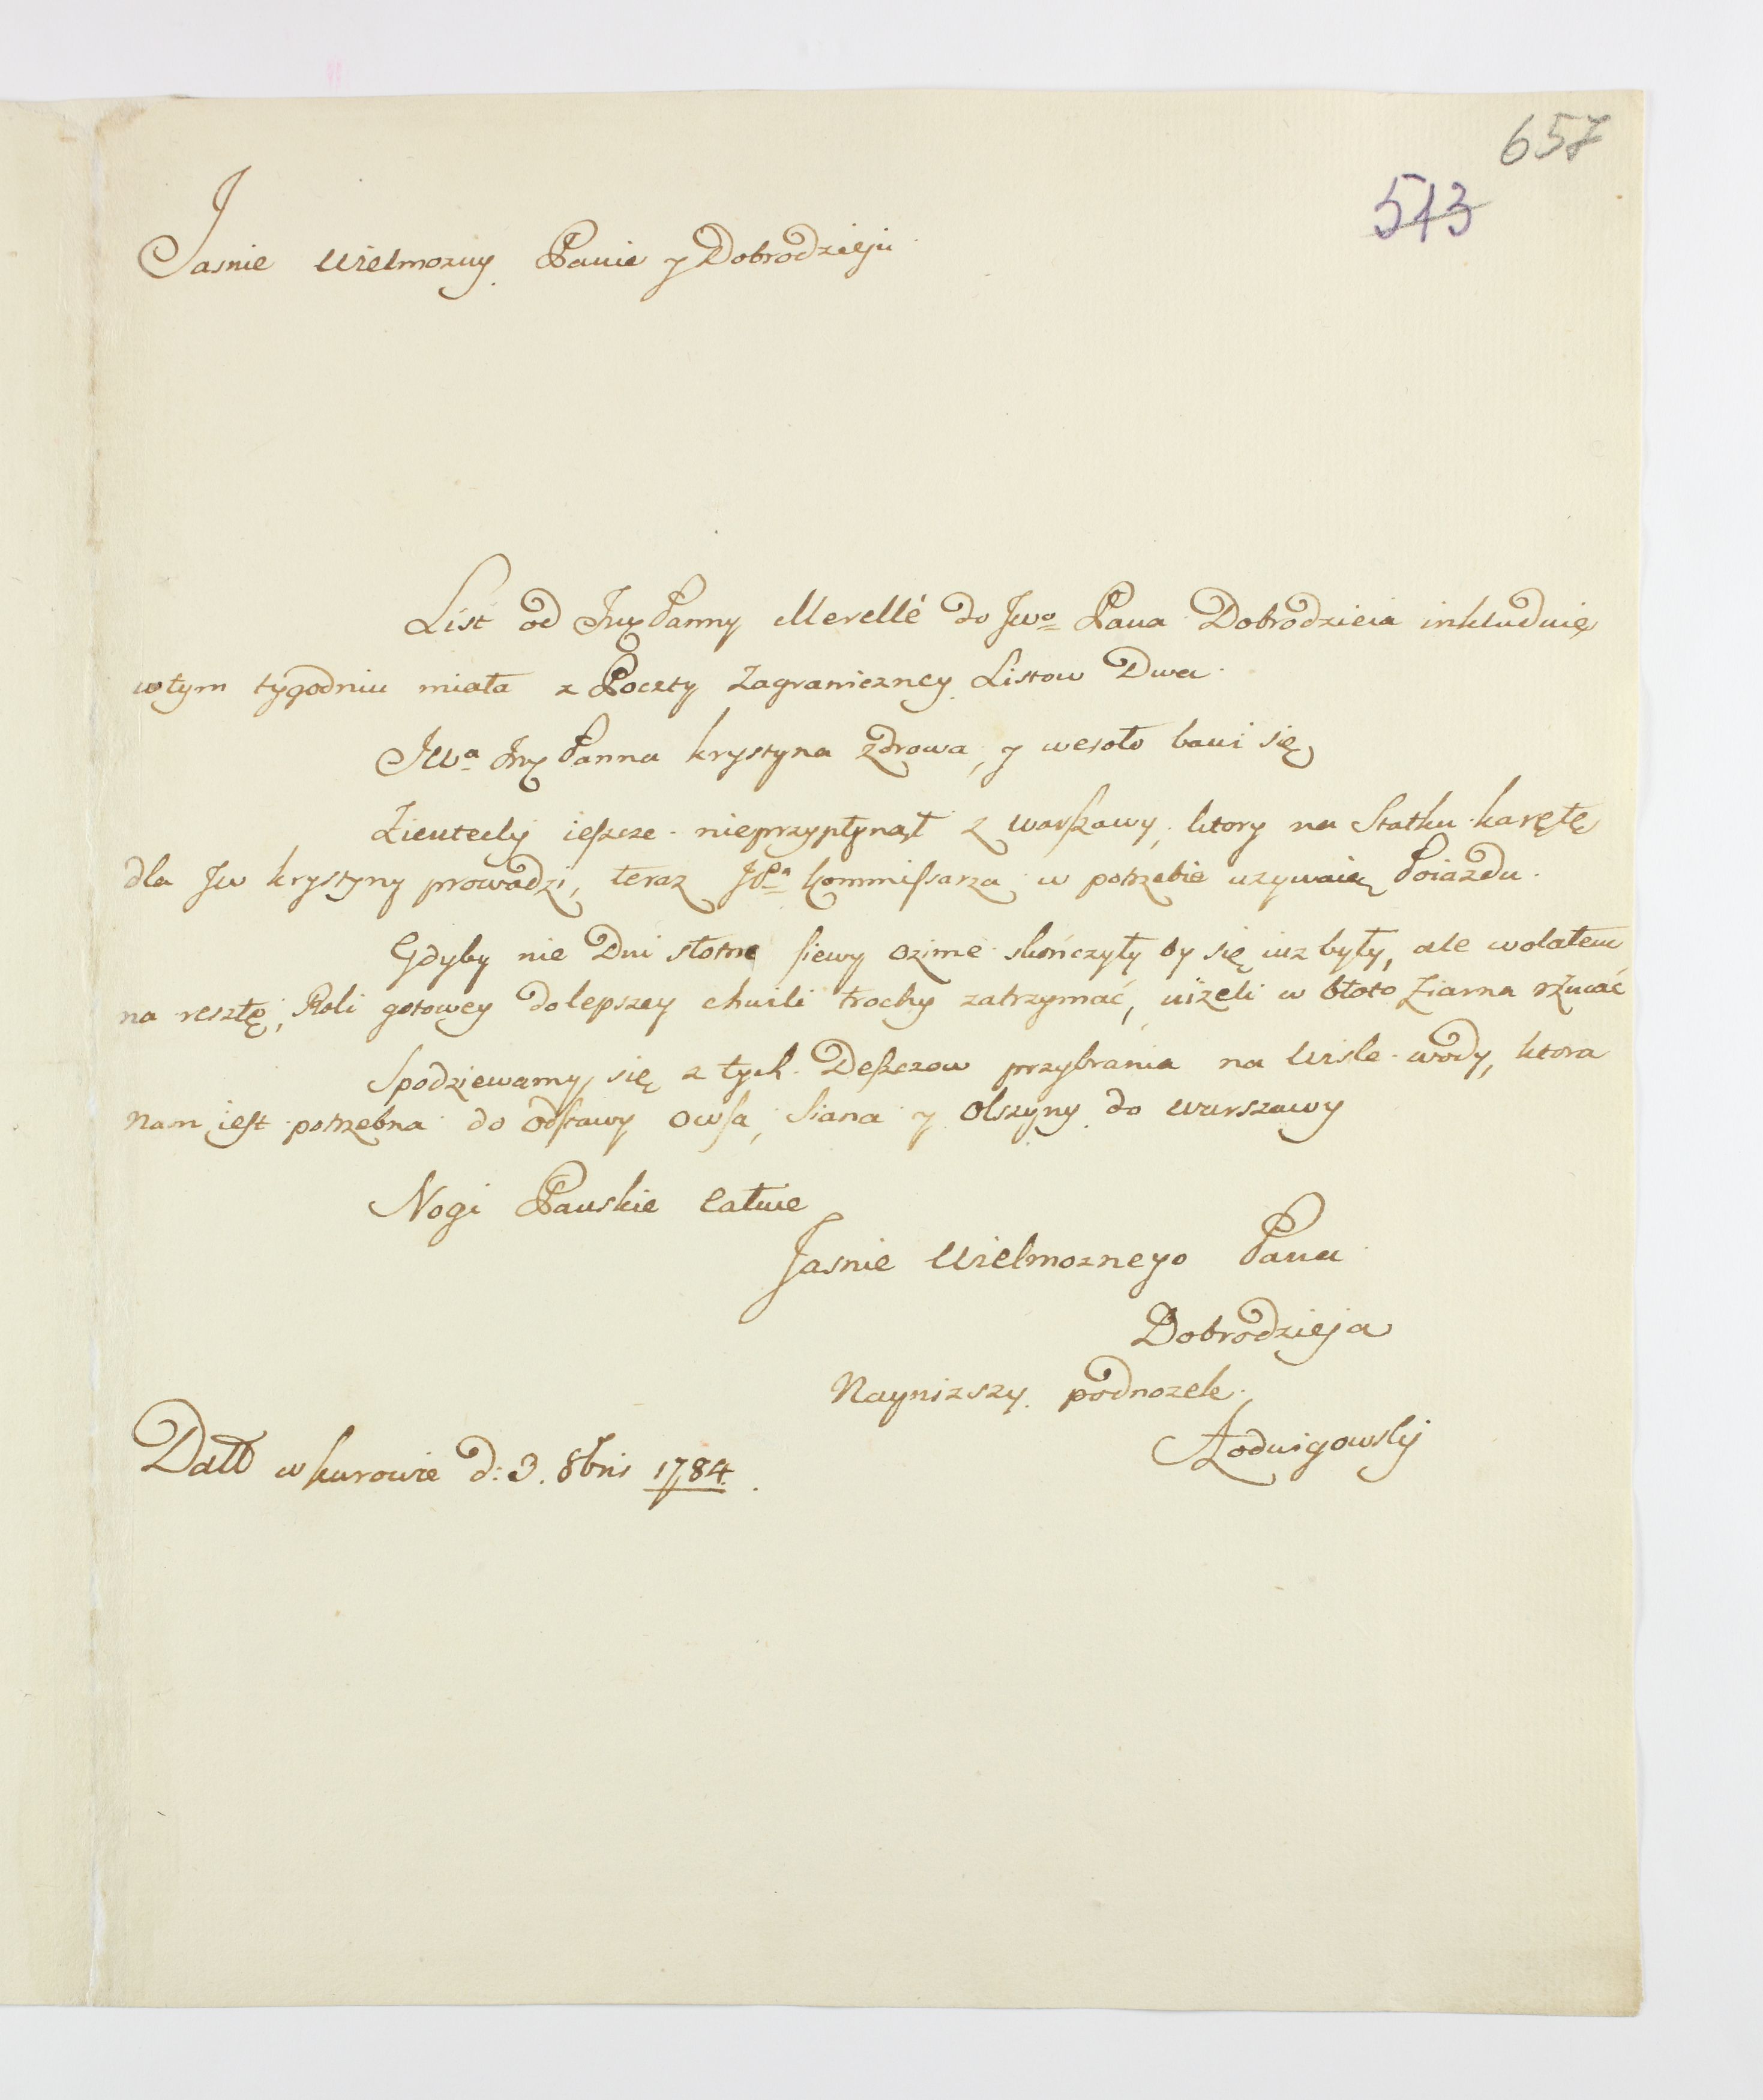 657
513
Jasnie Wielmozny Panie y Dobrodzieju
List od Jmę Panny Merellé do Jwo Pana Dobrodzieia inkluduię
w tym tygodniu miała z Poczty Zagraniczney Listow Dwa.
JWa Jmę Panna krystyna zdrowa, y wesoło bawi się
ieszcze nieprzypłynął z warszawy, ktory na Statku karętę
dla Jw krystyny prowadzi, teraz JPa kommissarza w potrzebie uzywaię Poiazdu.
Gdyby nie Dni słotne siewy ozime skończyły by się iuz były, ale wolałem
na resztę, Roli gotowey do lepszey chwili trochy zatrzymać, niżeli w błoto Ziarna rżucać
Spodziewamy się z tych Deszczow przybrania na Wisle wody, ktora
nam iest potrzebna do odstawy owsa, siana y Olszyny do warszawy
Nogi Pańskie całuie
Jasnie Wielmoznego Pana
Dobrodzieja
Naynizszy podnozek
ALodwigowskj
Datt w kurowie d: 3. 8bris 1784.